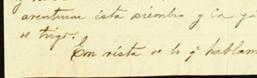 aventurar esta siembra y la ya
de trigo.
En vista de lo q hablam